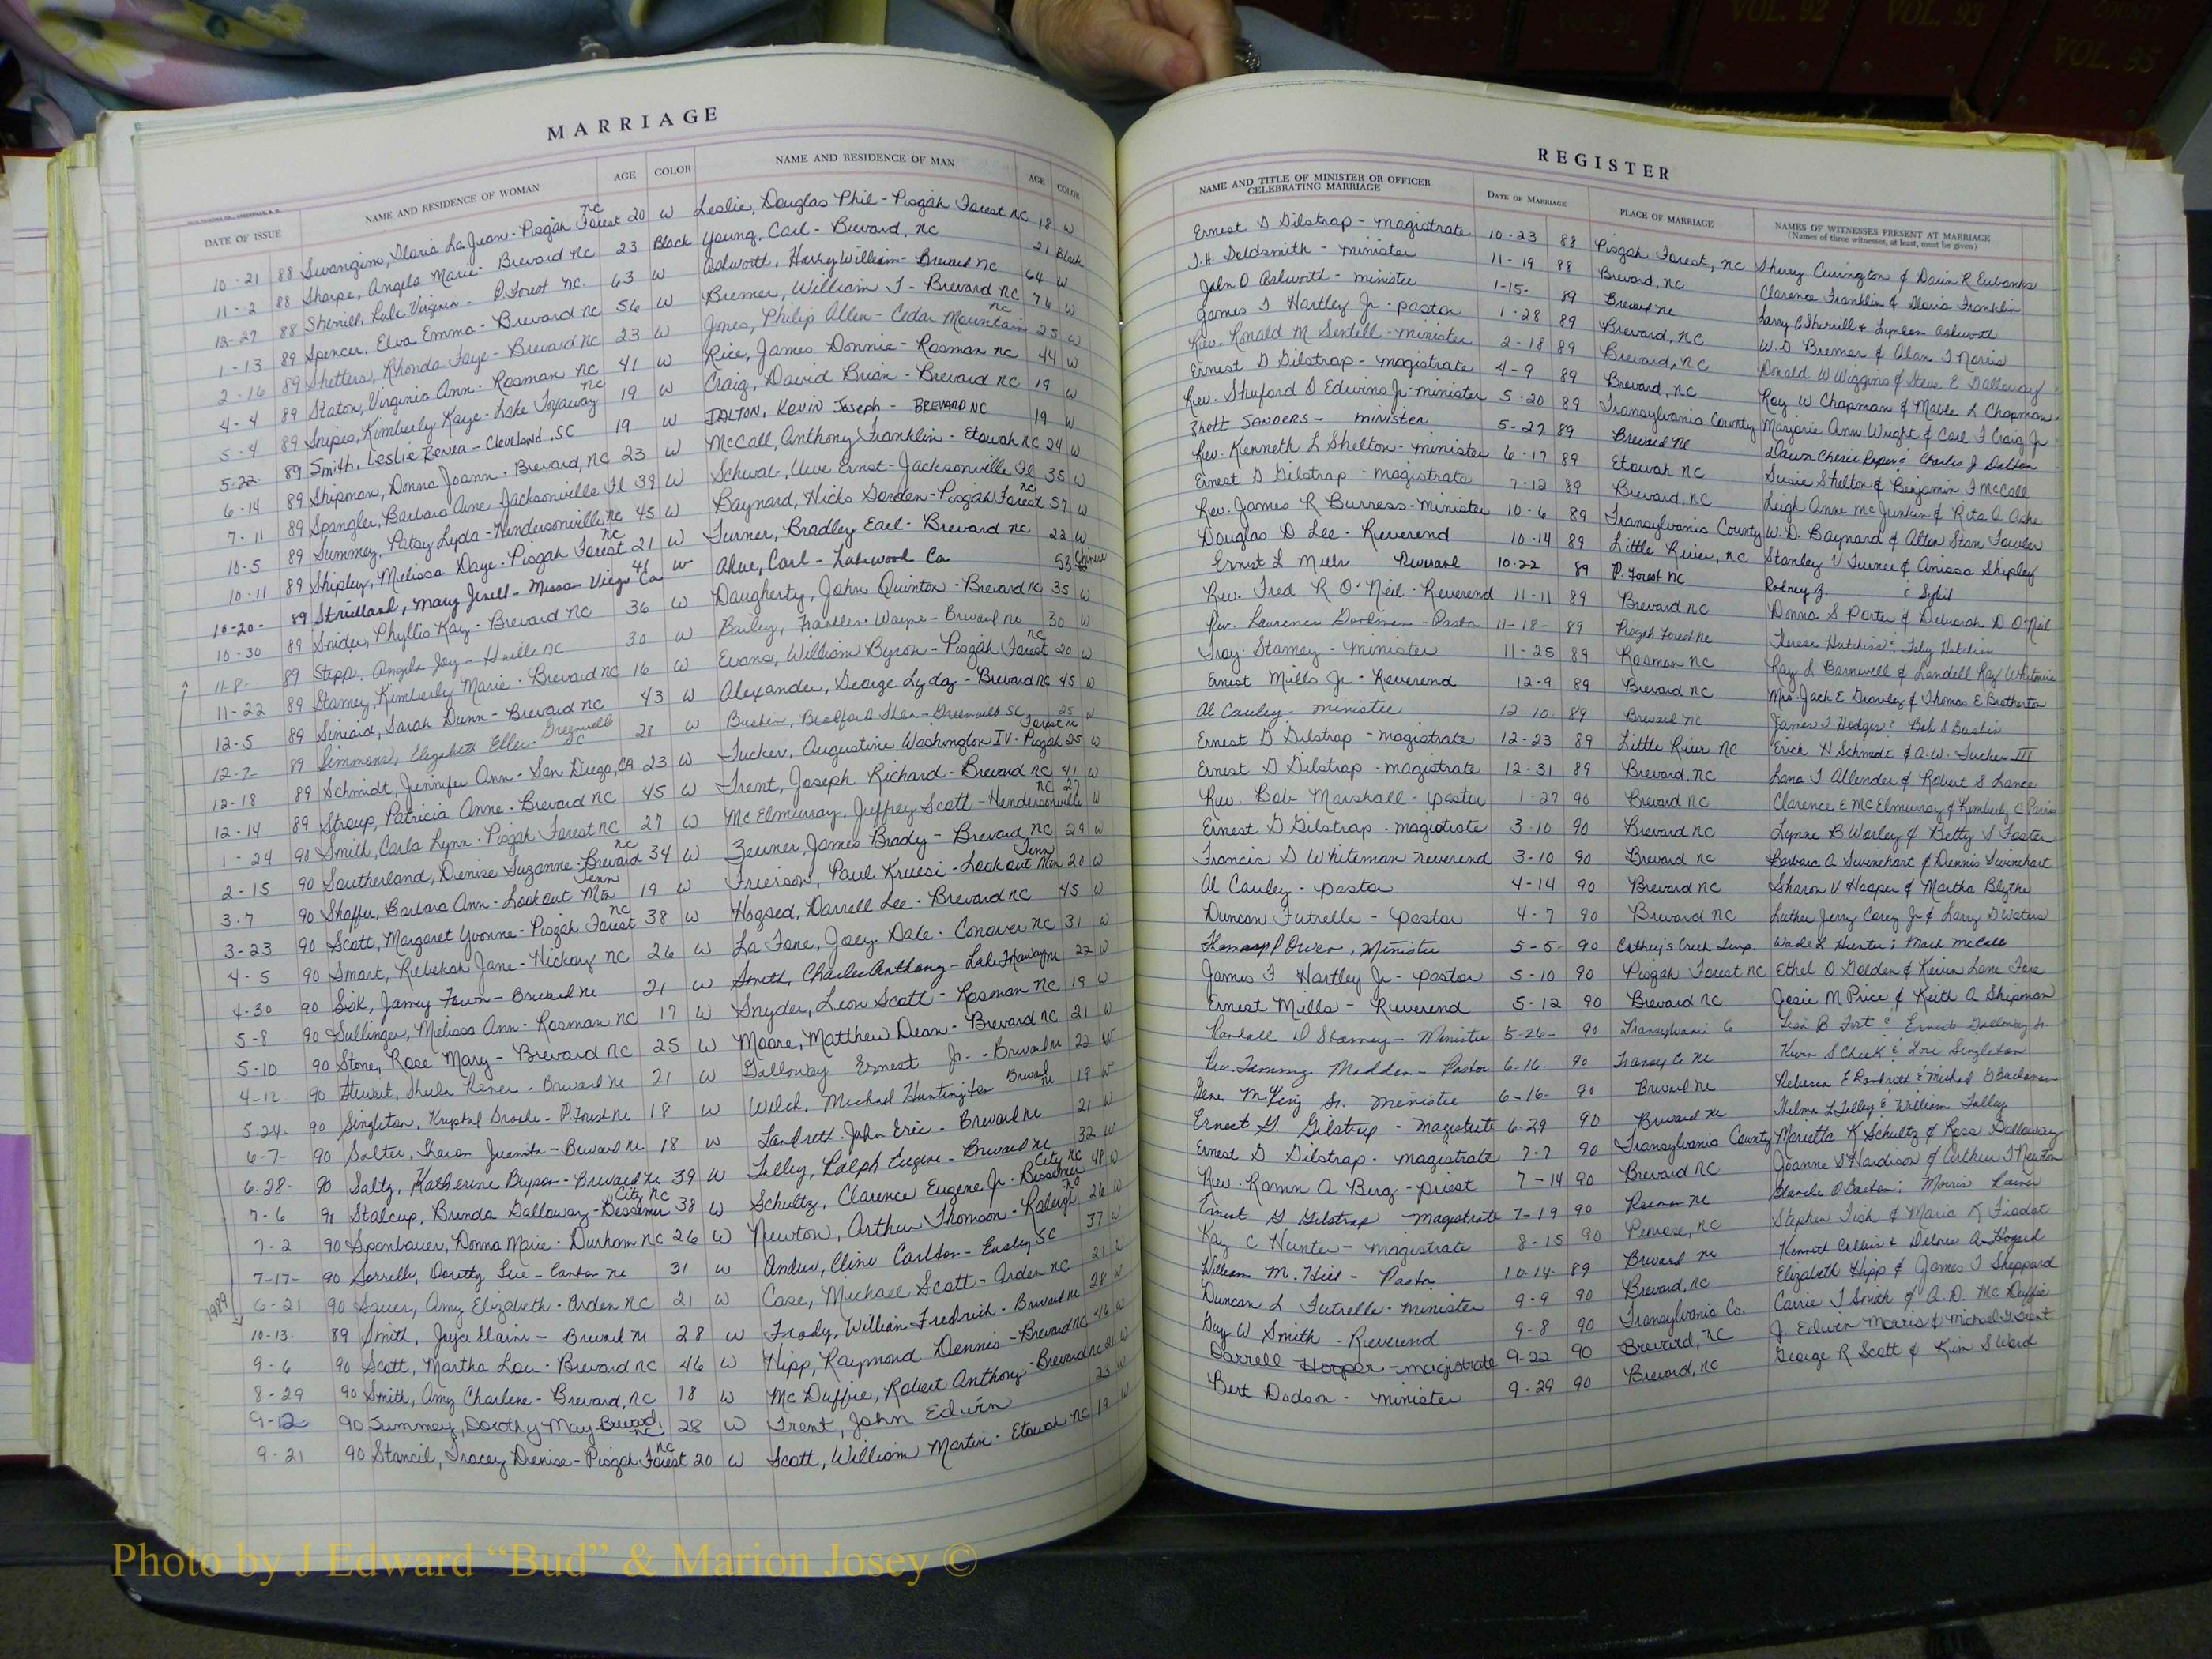 VOL. 90
VOL. 91
VOL. 92
VOL. 93
COUNTY
VOL. 95
MARRIAGE
DATE OF ISSUE NAME AND RESIDENCE OF WOMAN AGE COLOR NAME AND RESIDENCE OF MAN AGE COLOR
10-21 88 Swangim, Gloria LaJean - Pisgah Forest NC 20 W Leslie, Douglas Phil - Pisgah Forest NC 18 W
11-2 88 Sharpe, Angela Marie - Brevard NC 23 Black Young, Carl - Brevard, NC 21 Black
12-27 88 Sherrill, Lula Virginia - P. Forest NC. 63 W Ashworth, Harvey William - Brevard NC 64 W
1-13 89 Spencer, Elva Emma - Brevard NC 56 W Bremer, William J - Brevard NC 76 W
2-16 89 Shetters, Rhonda Faye - Brevard NC 23 W Jones, Philip Allen - Cedar Mountain NC 25 W
4-4 89 Staton, Virginia Ann - Rosman NC 41 W Rice, James Donnie - Rosman NC 44 W
5-4 89 Snipes, Kimberly Kaye - Lake Toxaway NC 19 W Craig, David Brian - Brevard NC 19 W
5-22- 89 Smith, Leslie Renea - Cleveland, SC 19 W DALTON, Kevin Joseph - BREVARD NC 19 W
6-14 89 Shipman, Donna Joann - Brevard, NC 23 W McCall, Anthony Franklin - Etowah NC 24 W
7-11 89 Spangler, Barbara Anne Jacksonville Fl 39 W Schwal, Uwe Ernst - Jacksonville Fl 35 W
10-5 89 Summey, Patsy Lyda - Hendersonville NC 45 W Baynard, Hicks Gordon - Pisgah Forest NC 57 W
10-11 89 Shipley, Melissa Daye - Pisgah Forest NC 21 W Turner, Bradley Earl - Brevard NC 22 W
10-20- 89 Strickland, Mary Jewell - Mission Viejo Ca 41 W Ahue, Carl - Lakewood Ca 53
10-30 89 Snider, Phyllis Kay - Brevard NC 36 W Daugherty, John Quinton - Brevard NC 35 W
11-8- 89 Stepp, Angela Joy - Hville NC 30 W Bailey, Franklin Wayne - Brevard NC 30 W
11-22 89 Stamey, Kimberly Marie - Brevard NC 16 W Evans, William Byron - Pisgah Forest NC 20 W
12-5 89 Siniard, Sarah Dunn - Brevard NC 43 W Alexander, George Lyday - Brevard NC 45 W
12-7- 89 Simmons, Elizabeth Ellen - Greenville SC 28 W Busbin, Bradford Shea - Greenville SC, 25 W
12-18 89 Schmidt, Jennifer Ann - San Diego, CA 23 W Tucker, Augustine Washington IV - Pisgah Forest NC 25 W
12-14 89 Stroup, Patricia Anne - Brevard NC 45 W Trent, Joseph Richard - Brevard NC 41 W
1-24 90 Smith, Carla Lynn - Pisgah Forest NC 27 W McElmurray, Jeffrey Scott - Hendersonville NC 27 W
2-15 90 Southerland, Denise Suzanne - Brevard NC 34 W Zeuner, James Brady - Brevard, NC 29 W
3-7 90 Shaffer, Barbara Ann - Lookout Mtn Tenn 19 W Frierson, Paul Kruesi - Lookout Mtn Tenn 20 W
3-23 90 Scott, Margaret Yvonne - Pisgah Forest NC 38 W Hogsed, Darrell Lee - Brevard NC 45 W
4-5 90 Smart, Rebekah Jane - Hickory NC 26 W La Fone, Joey Dale - Conover NC 31 W
4-30 90 Sisk, Jamey Fawn - Brevard NC 21 W Smith, Charles Anthony - Lake Toxaway NC 22 W
5-8 90 Sullinger, Melissa Ann - Rosman NC 17 W Snyder, Leon Scott - Rosman NC 19 W
5-10 90 Stone, Rose Mary - Brevard NC 25 W Moore, Matthew Dean - Brevard NC 21 W
4-12 90 Stewart, Sheila Renee - Brevard NC 21 W Galloway Ernest Jr. - Brevard NC 22 W
5-24- 90 Singleton, Krystal Brooke - P. Forest NC 18 W Welch, Michael Huntington Brevard NC 19 W
6-7- 90 Salter, Sharon Juanita - Brevard NC 18 W Landreth, John Eric - Brevard NC 21 W
6-28- 90 Saltz, Katherine Bryson - Brevard NC 39 W Talley, Ralph Eugene - Brevard NC 32 W
7-6 90 Stalcup, Brenda Galloway - Bessemer City NC 38 W Schultz, Clarence Eugene Jr - Bessemer City NC 48 W
7-2 90 Spanbauer, Donna Marie - Durham NC 26 W Newton, Arthur Thomson - Raleigh NC 26 W
7-17- 90 Sorrells, Dorothy Sue - Canton NC 31 W Anders, Cline Carlton - Easley SC 37 W
6-21 90 Sauer, Amy Elizabeth - Arden NC 21 W Case, Michael Scott - Arden NC 21 W
1989
10-13- 89 Smith, Joyce Elaine - Brevard NC 28 W Frady, William Fredrich - Brevard NC 28 W
9-6 90 Scott, Martha Lou - Brevard NC 46 W Hipp, Raymond Dennis - Brevard NC 46 W
8-29 90 Smith, Amy Charlene - Brevard, NC 18 W McDuffie, Robert Anthony - Brevard NC 21 W
9-12 90 Summey, Dorothy May Brevard, NC 28 W Trent, John Edwin 23 W
9-21 90 Stancil, Tracey Denise - Pisgah Forest NC 20 W Scott, William Martin - Etowah NC 19 W
REGISTER
NAME AND TITLE OF MINISTER OR OFFICER CELEBRATING MARRIAGE DATE OF MARRIAGE PLACE OF MARRIAGE NAMES OF WITNESSES PRESENT AT MARRIAGE (Names of three witnesses, at least, must be given)
Ernest G Gilstrap - magistrate 10-23 88 Pisgah Forest, NC Sherry Curington & Darin R Eubanks
J.H. Goldsmith - minister 11-19 88 Brevard, NC Clarence Franklin & Gloria Franklin
John O Ashworth - minister 1-15- 89 Brevard NC Larry E Sherrill & Lyndon Ashworth
James T Hartley Jr - pastor 1-28 89 Brevard, NC W.D Bremer & Alan J Norris
Rev. Ronald M Sentell - minister 2-18 89 Brevard, NC Donald W Wiggins & Steve E Galloway
Ernest G Gilstrap - magistrate 4-9 89 Brevard, NC Roy W Chapman & Mable L Chapman
Rev. Shuford D Edwins Jr - minister 5-20 89 Transylvania County Marjorie Ann Wright & Carl F Craig Jr
Rhett SANDERS - minister 5-27 89 Brevard NC Dawn Cherie Piper & Charles J Dalton
Rev. Kenneth L Shelton - minister 6-17 89 Etowah NC Susie Shelton & Benjamin F McCall
Ernest G Gilstrap - magistrate 7-12 89 Brevard, NC Leigh Anne McJunkin & Rita A Ashe
Rev. James R Burress - minister 10-6 89 Transylvania County W.D. Baynard & Alton Stan Fowler
Douglas D Lee - Reverend 10-14 89 Little River, NC Stanley V Turner & Anissa Shipley
Ernest L Mills Reverend 10-22 89 P. Forest NC Rodney J. & Sybil
Rev. Fred R O'Neil - Reverend 11-11 89 Brevard NC Donna S Porter & Deborah D O'Neil
Rev. Lawrence Goodman - Pastor 11-18- 89 Pisgah Forest NC Theresa Hutchins & Toby Hutchins
Troy Stamey - minister 11-25 89 Rosman NC Ray L Barnewell & Landell Ray Whitmire
Ernest Mills Jr - Reverend 12-9 89 Brevard NC Mrs. Jack E Gravley & Thomas E Brotherton
Al Cauley - minister 12-10 89 Brevard NC James T Hodges & Bob S Busbin
Ernest G Gilstrap - magistrate 12-23 89 Little River NC Erich H Schmidt & A.W. Tucker III
Ernest G Gilstrap - magistrate 12-31 89 Brevard, NC Lana J Allender & Robert S Lance
Rev. Bob Marshall - pastor 1-27 90 Brevard NC Clarence E McElmurray & Kimberly C Parris
Ernest G Gilstrap - magistrate 3-10 90 Brevard NC Lynne B Worley & Betty S Foster
Francis G Whiteman - reverend 3-10 90 Brevard NC Barbara A Swinehart & Dennis Swinehart
Al Cauley - pastor 4-14 90 Brevard NC Sharon V Hooper & Martha Blythe
Duncan Futrelle - pastor 4-7 90 Brevard NC Luther Jerry Corey Jr & Larry G Waters
Thomas P Owen, Minister 5-5- 90 Cathey's Creek Twp. Wade L Hunter & Mark McCall
James T Hartley Jr - pastor 5-10 90 Pisgah Forest NC Ethel O Golden & Kevin Lane Fore
Ernest Mills - Reverend 5-12 90 Brevard NC Josie M Price & Keith A Shipman
Randall D Stamey - Minister 5-26- 90 Transylvania Co Lisa B Fort & Ernest Galloway Sr.
Rev. Tammy Madden - Pastor 6-16. 90 Transy Co NC Kevin S Cheek & Lori Singleton
Gene McKinz Sr. Minister 6-16- 90 Brevard NC Rebecca E Landreth & Michael G Buchanan
Ernest G. Gilstrap - Magistrate 6-29 90 Brevard NC Thelma L Talley & William Talley
Ernest G Gilstrap - magistrate 7-7 90 Transylvania County Marietta K Schultz & Ross Galloway
Rev. Romn A Berg - priest 7-14 90 Brevard NC Joanne S Hardison & Arthur T Newton
Ernest G Gilstrap Magistrate 7-19 90 Rosman NC Blanche O Barton & Morris Rainer
Kay C Hunter - magistrate 8-15 90 Penrose, NC Stephen Fish & Maria K Fradet
William M. Hill - Pastor 10-14- 89 Brevard NC Kenneth Collins & Delores A Hogsed
Duncan L Futrelle - minister 9-9 90 Brevard, NC Elizabeth Hipp & James T Sheppard
Guy W Smith - Reverend 9-8 90 Transylvania Co. Carrie J Smith & A.D. McDuffie
Darrell Hooper - magistrate 9-22 90 Brevard, NC J. Edwin Morris & Michael G Trent
Bert Dodson - minister 9-29 90 Brevard, NC George R Scott & Kim S Ward
Photo by J Edward “Bud” & Marion Josey ©